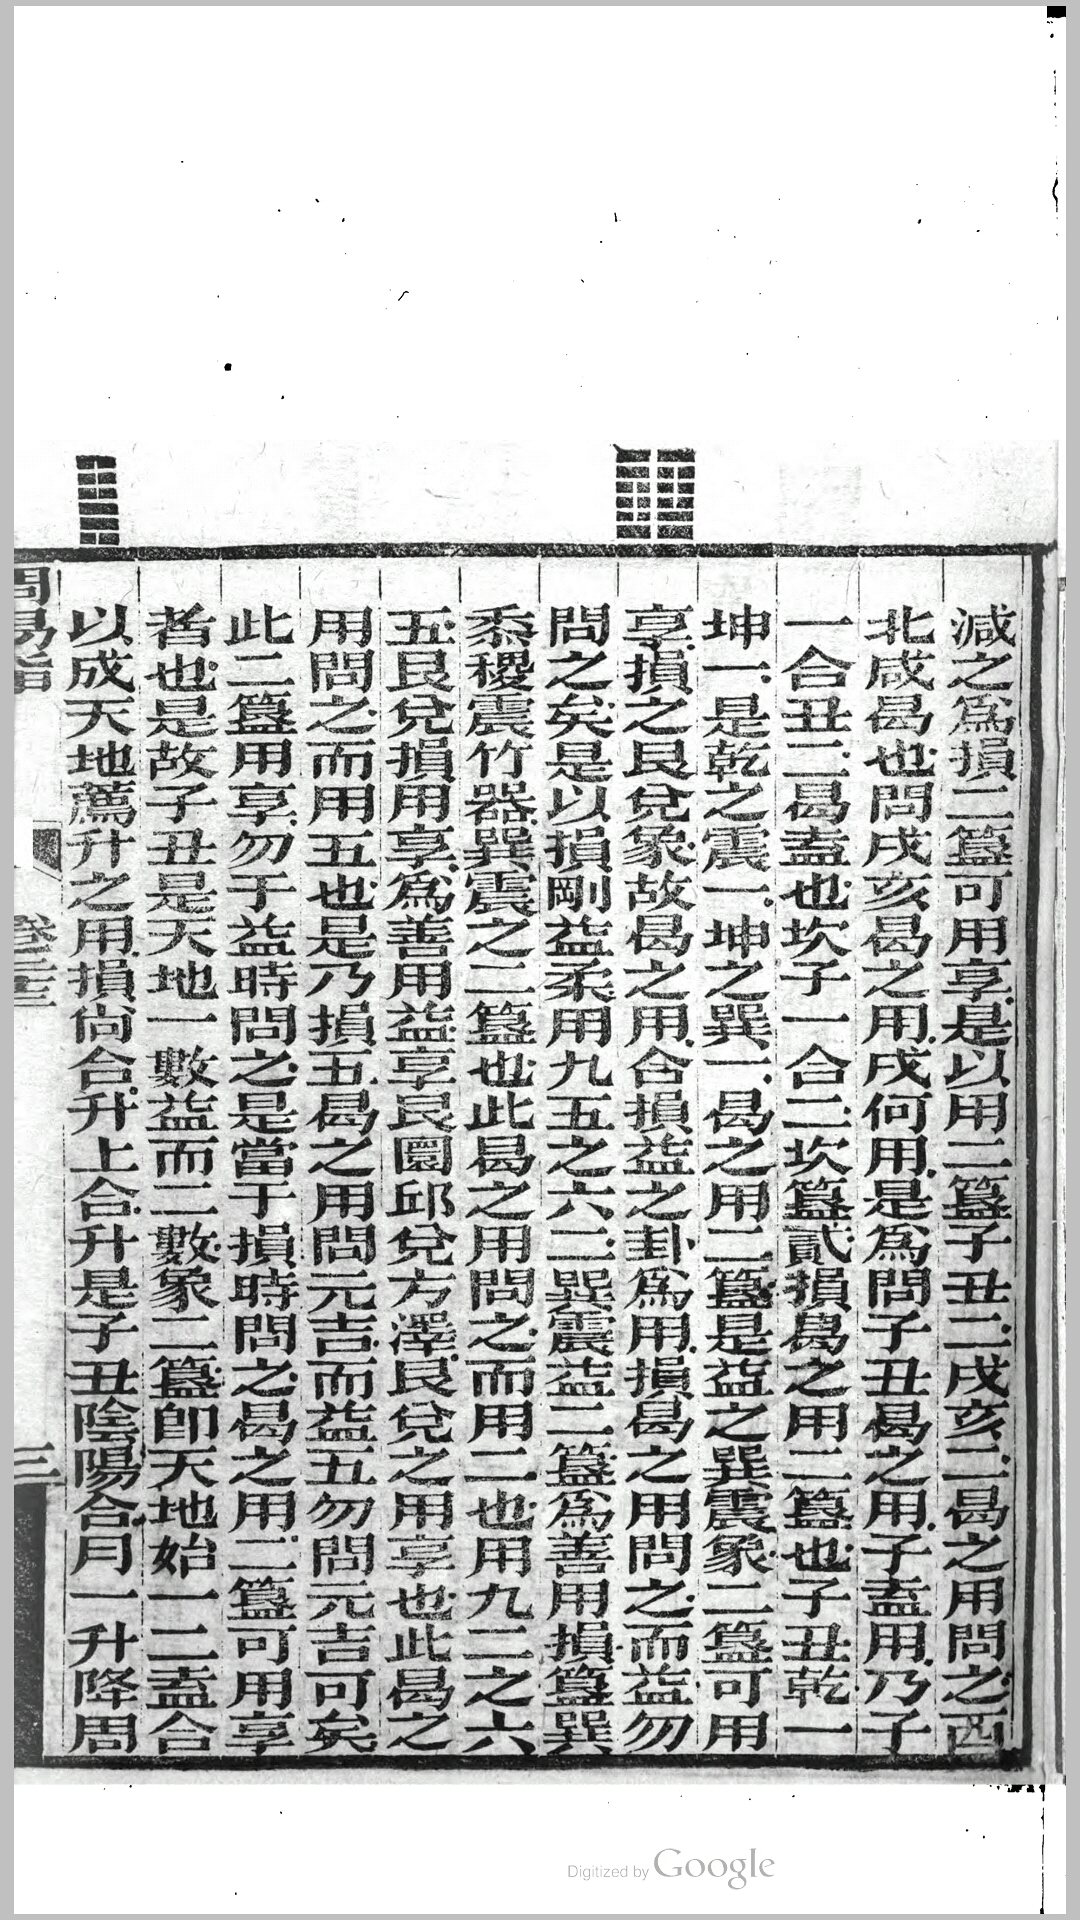 減之爲損二簋可用享是以用二簋子丑二戌亥二曷之用問之西
北咸曷也問戌亥曷之用戌何用是爲問子丑曷之用子盍用乃子
一合丑二曷盍也坎子一合二坎簋貳損曷之用二簋也子丑乾一
坤一是乾之震一坤之巽一曷之用二簋是益之巽震象二簋可用
享損之艮兌象故曷之用合損益之卦爲用損曷之用問之而益勿
問之矣是以損剛益柔用九五之六二巽震益二簋爲善用損簋巽
黍稷震竹器巽震之二簋也此曷之用問之而用二也用九二之六
五艮兌損用享爲善用益享艮圜邱兌方澤艮兌之用享也此曷之
用問之而用五也是乃損五曷之用問元吉而益五勿問元吉可矣
此二簋用享勿于益時問之是當于損時問之曷之用二簋可用享
者也是故子丑是天地一數益而二數象二簋卽天地始一二盍合
以成天地薦升之用損尙合升上合升是子丑陰陽合月一升降周
周易指
卷二十三
三
Digitized by Google